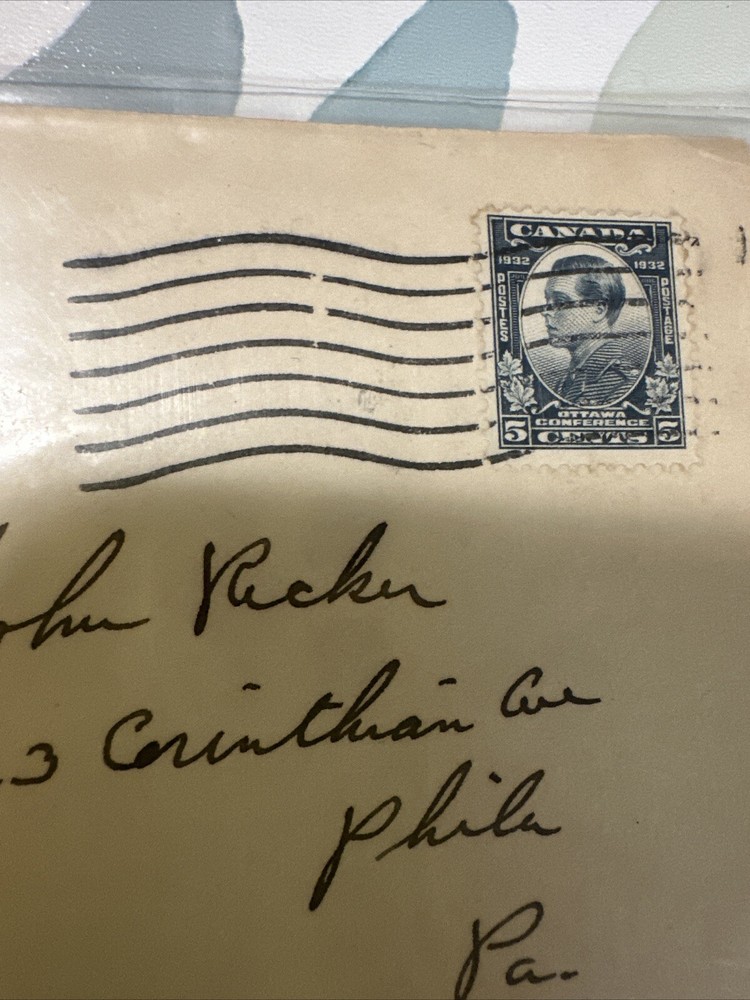 CANADA
1932 1932
POSTES POSTAGE
OTTAWA
CONFERENCE
5 CENTS 5
John Recker
3 Corinthian Ave
Phila
Pa.